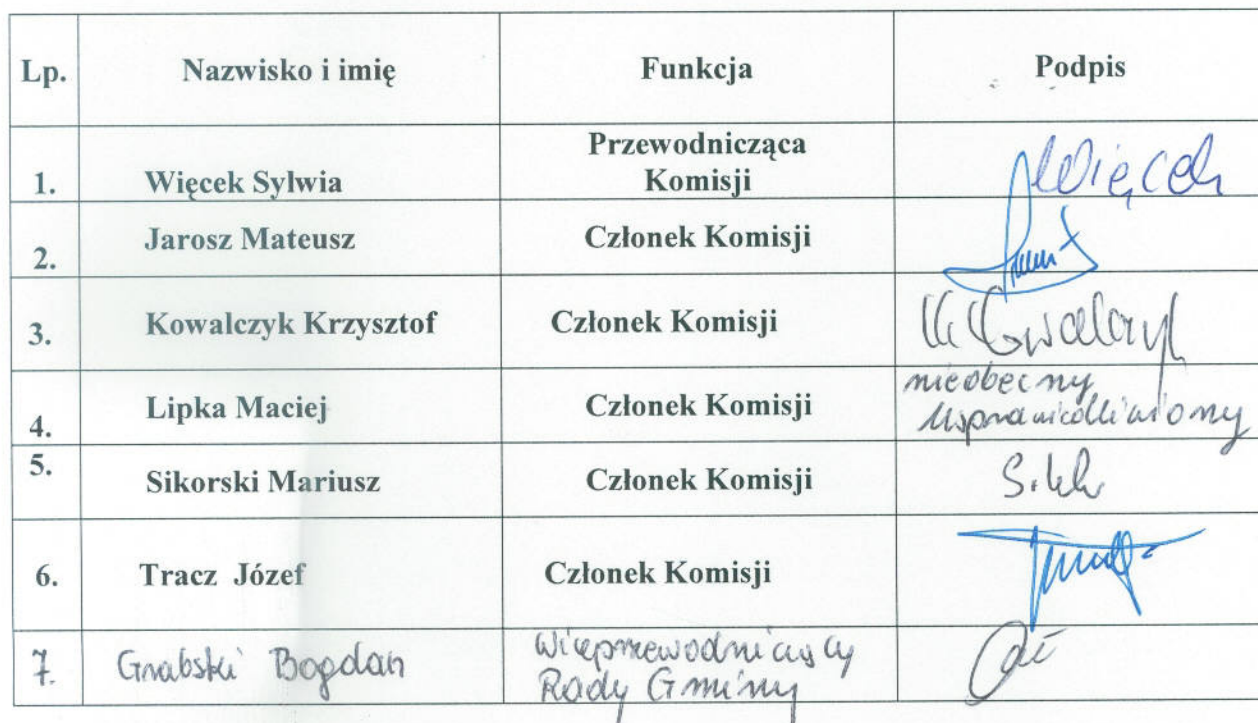 Lp. Nazwisko i imię Funkcja Podpis
Przewodnicząca
1. Więcek Sylwia Komisji Więcek
2. Jarosz Mateusz Członek Komisji
3. Kowalczyk Krzysztof Członek Komisji K Kowalczyk
nieobecny
4. Lipka Maciej Członek Komisji usprawiedliwiony
5. Sikorski Mariusz Członek Komisji
6. Tracz Józef Członek Komisji
7. Grabski Bogdan Wiceprzewodniczący
Rady Gminy